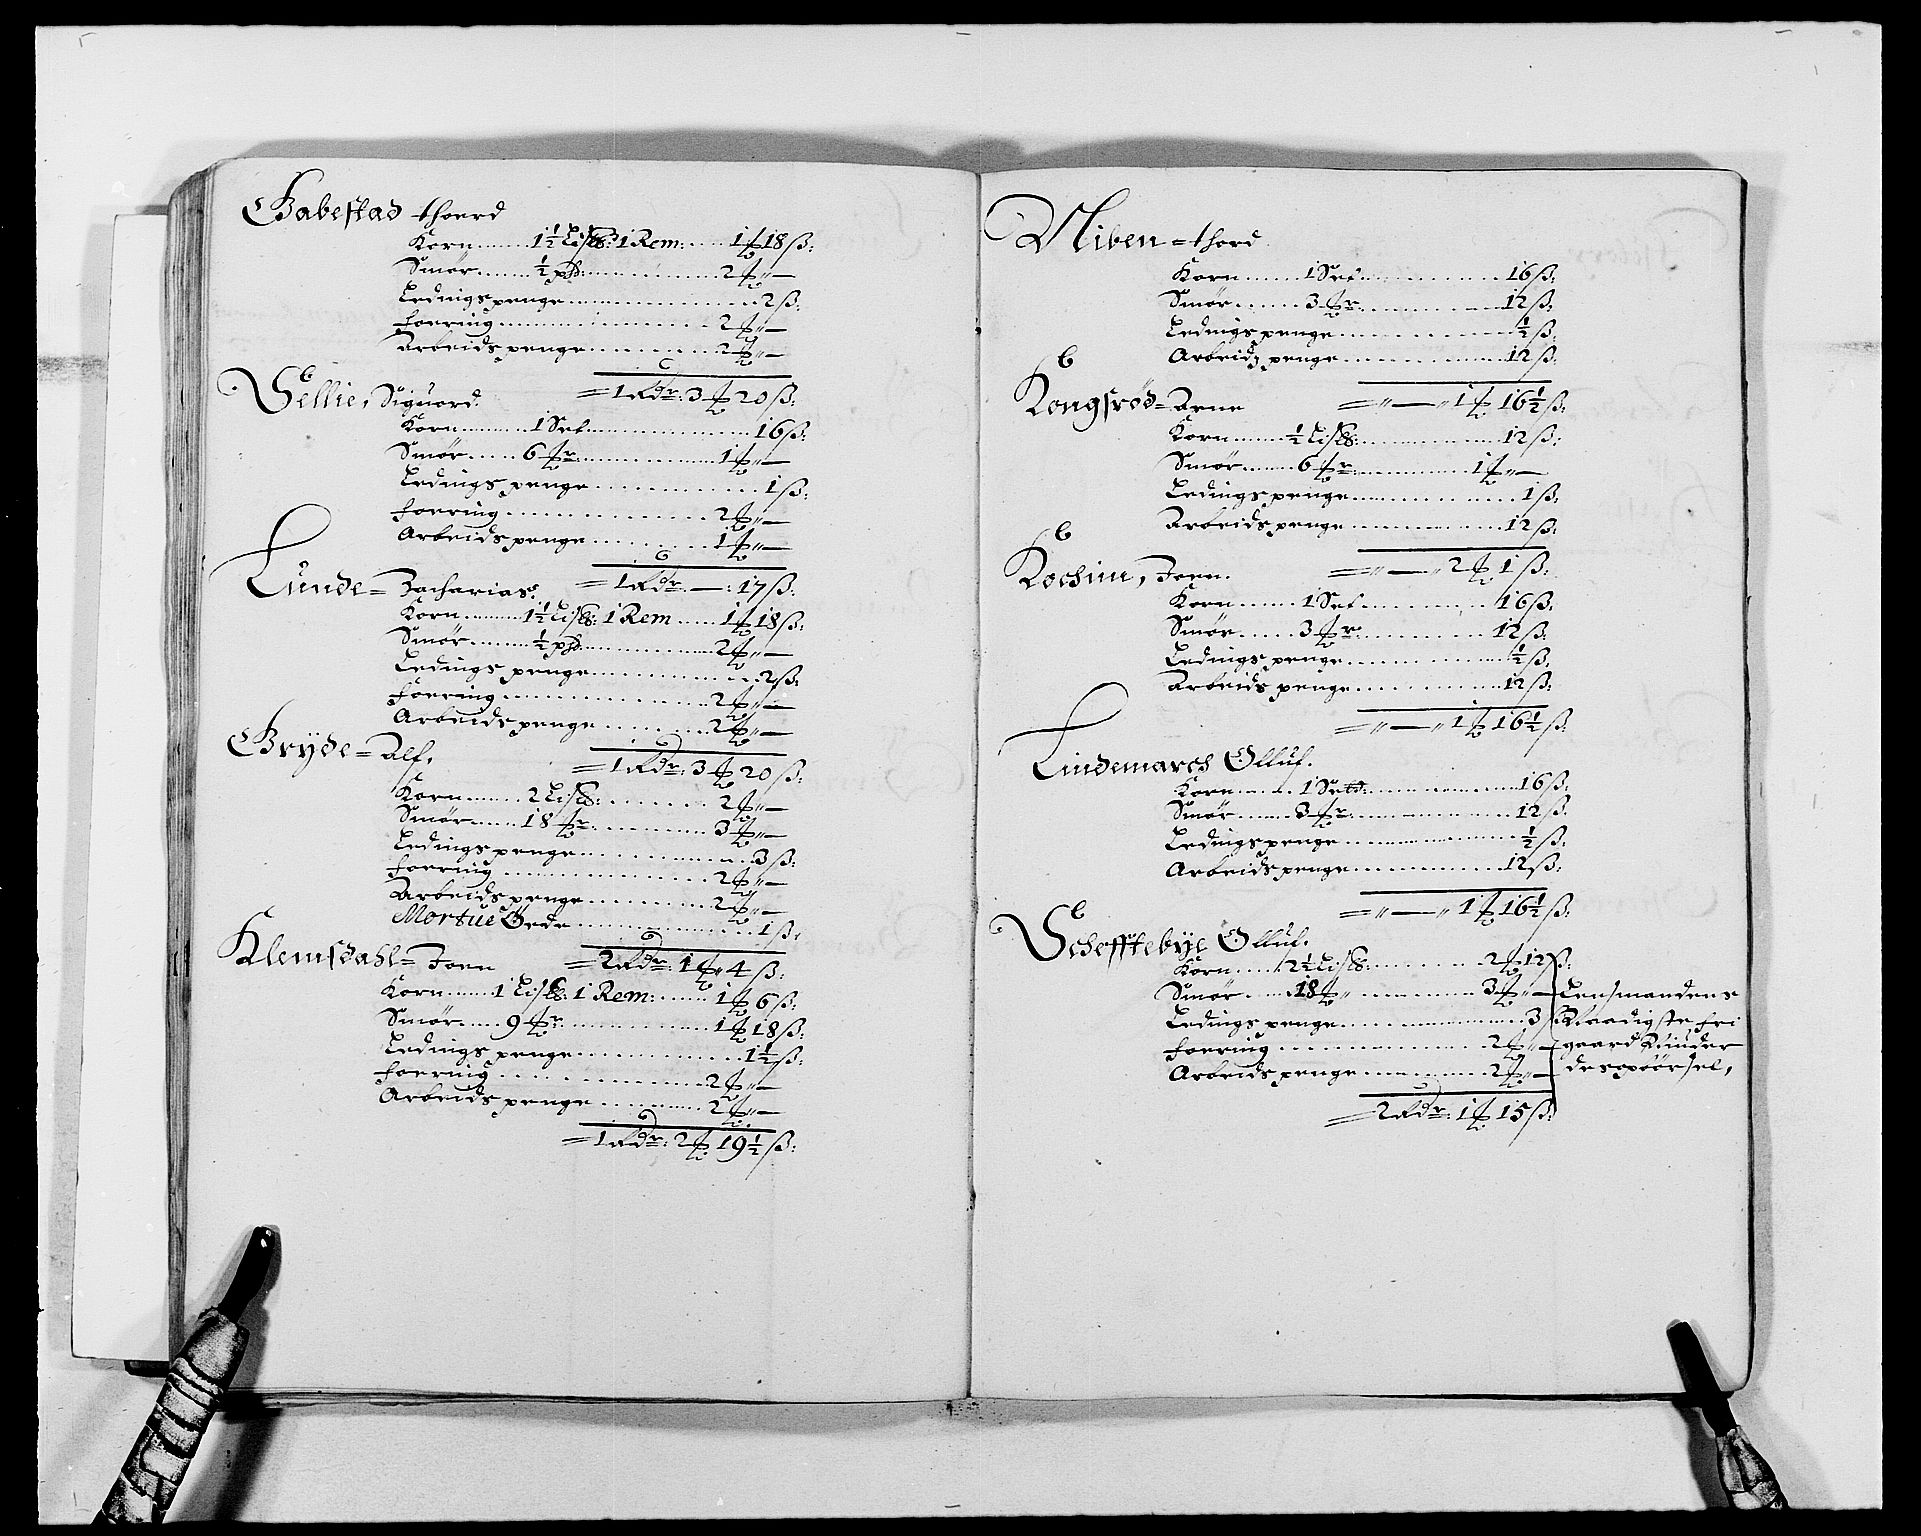 Babestad thoerd
Korn 1½ Lispd: 1 Rem: 1 ℔ 18 ß:
Smør ½ pd: 2 ℔ "—
Ledingspenge 2 ß:
Foering 2 ℔ "—
Arbeidspenge 2 ℔ "—
= 1 Rdr: 3 ℔ 20 ß:
Vellie, Siguord.
Korn 1 Set 16 ß:
Smør 6 ℔r 1 ℔ "—
Ledingspenge 1 ß:
Foering 2 ℔ "—
Arbeidspenge 1 ℔ "—
= 1 Rdr — : 17 ß:
Lunde = Zacharias.
Korn 1½ Lispd: 1 Rem 1 ℔ 18 ß:
Smør ½ pd: 2 ℔ "—
Ledingspenge 2 ß:
Foering 2 ℔ "—
Arbeidspenge 2 ℔ "—
= 1 Rdr: 3 ℔ 20 ß:
Brÿde = Alf.
Korn 2 Lispd: 2 ℔ "—
Smør 18 ℔r 3 ℔ "—
Ledingspenge 3 ß:
Foering 2 ℔ "—
Arbeidspenge 2 ℔ "—
Mortue Øede 1 ß:
= 2 Rdr: 1 ℔ 4 ß:
Klemsdahl = Joen
Korn 1 Lispd: 1 Rem: 1 ℔ 6 ß:
Smør 9 ℔r 1 ℔ 18 ß:
Ledingspenge 1½ ß:
Foering 2 ℔ "—
Arbeidspenge 2 ℔ "—
= 1 Rdr: 2 ℔ 19½ ß:
Niben = thord
Korn 1 Set 16 ß:
Smør 3 ℔r 12 ß:
Ledingspenge ½ ß:
Arbeidspenge 12 ß:
= " — " 1 ℔ 16½ ß:
Kongsrød = Arne
Korn ½ Lispd: 12 ß:
Smør 6 ℔r 1 ℔ "—
Ledingspenge 1 ß:
Arbeidspenge 12 ß:
= " — " 2 ℔ 1 ß:
Kochim, Joen.
Korn 1 Set 16 ß:
Smør 3 ℔r 12 ß:
Ledingspenge ½ ß:
Arbeidspenge 12 ß:
= " — " 1 ℔ 16½ ß:
Lindemarch Olluf.
Korn 1 16 ß:
Smør 3 ℔r 12 ß:
Ledingspenge ½ ß:
Arbeidspenge 12 ß:
= " — " 1 ℔ 16½ ß:
Schefftebÿe Olluf.
Korn 2½ Lispd: 2 ℔ 12 ß:
Smør 18 ℔ " 3 ℔ "— Lensmandens
Ledingspenge 3 ß: Naadigste fri
Foering 2 ℔ "— gaard
Arbeidspenge 2 ℔ "—
= 2 Rdr: 1 ℔ 15 ß: